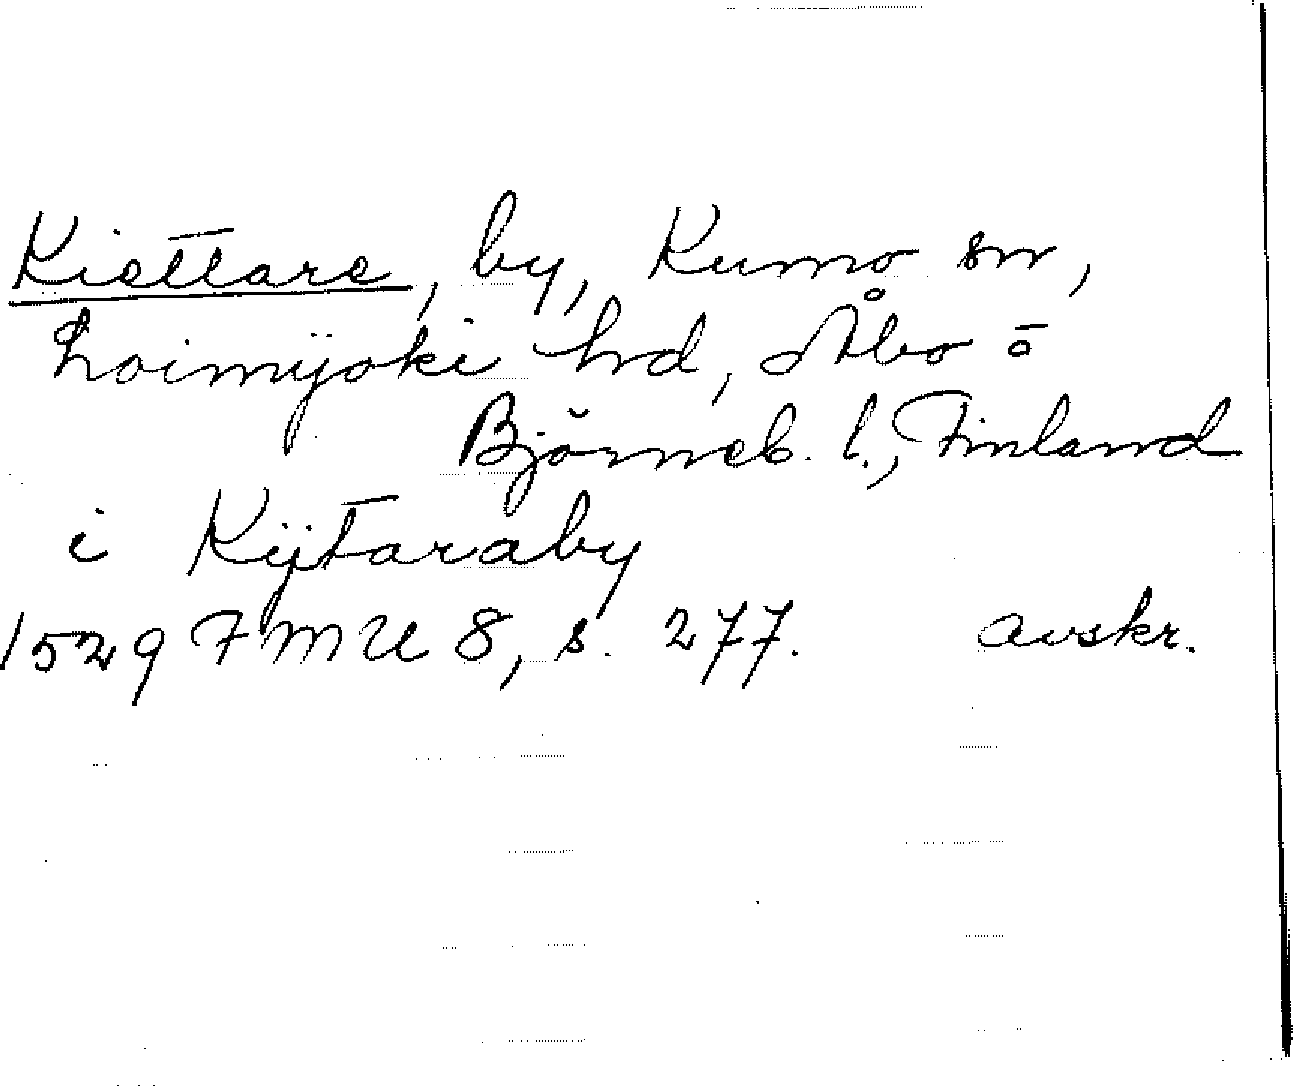 Kiettare, by, Kumo sn,
Loimijoki hd, Åbo o
Björneb. l., Finland
i Kijtaraby
1529 FMU 8, s. 277. avskr.